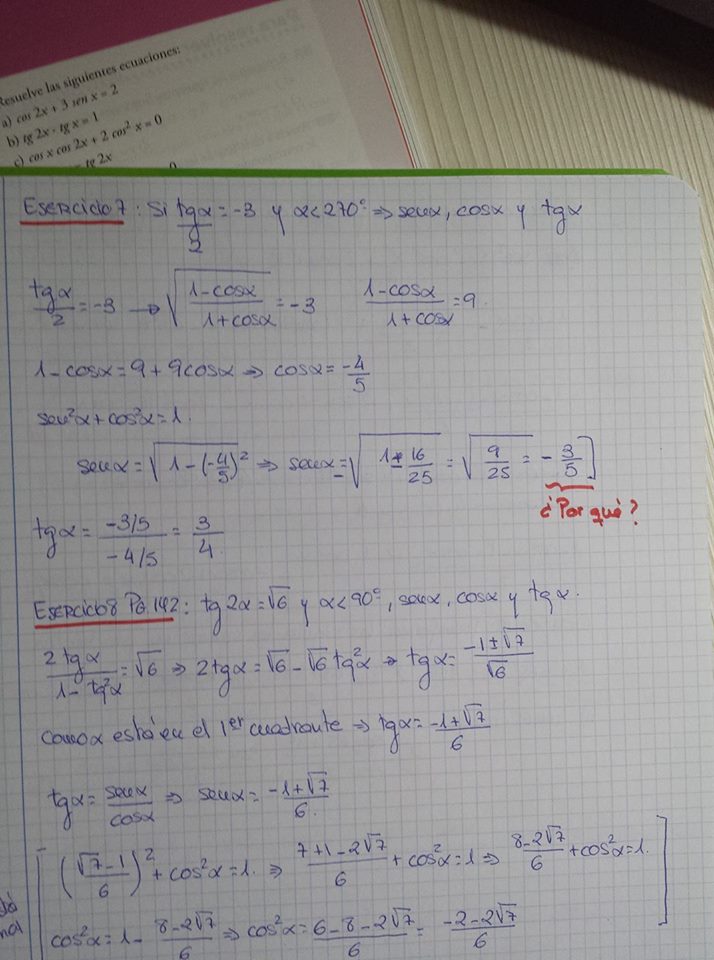 Resuelve las siguientes ecuaciones:
a) cos 2x + 3 sen x = 2
b) tg 2x · tg x = 1
c) cos x cos 2x + 2 cos² x = 0
= tg 2x
Ejercicio 7: Si tgα/2 = -3 y α<270° ⇒ senα, cosα y tgα
tgα/2 = -3 → √((1-cosα)/(1+cosα)) = -3   (1-cosα)/(1+cosα) = 9
1-cosα = 9+9cosα ⇒ cosα = -4/5
sen²α + cos²α = 1.
senα = √(1-(-4/5)²) ⇒ senα = √(1±16/25) = √(9/25) = -3/5]
¿Por qué?
tgα = (-3/5)/(-4/5) = 3/4
Ejercicio 8 Pg. 142: tg 2α = √6 y α<90°, senα, cosα y tgα.
2tgα/(1-tg²α) = √6 ⇒ 2tgα = √6 - √6 tg²α → tgα = (-1±√7)/√6
Como α está en el 1er cuadrante ⇒ tgα = (-1+√7)/6
tgα = senα/cosα ⇒ senα = (-1+√7)/6.
[((√7-1)/6)² + cos²α = 1. ⇒ (7+1-2√7)/6 + cos²α = 1 ⇒ (8-2√7)/6 + cos²α = 1.
cos²α = 1 - (8-2√7)/6 ⇒ cos²α = (6-8-2√7)/6 = (-2-2√7)/6]